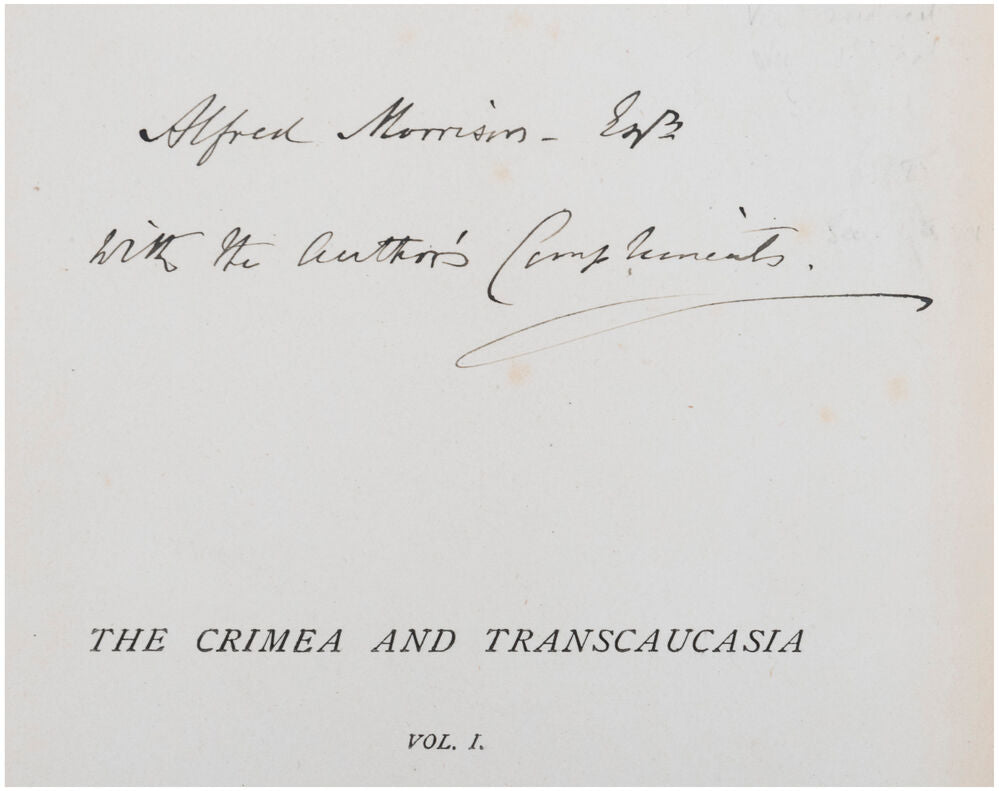 Alfred Morrison - Esqre
with the Author's Compliments.
THE CRIMEA AND TRANSCAUCASIA
VOL. I.